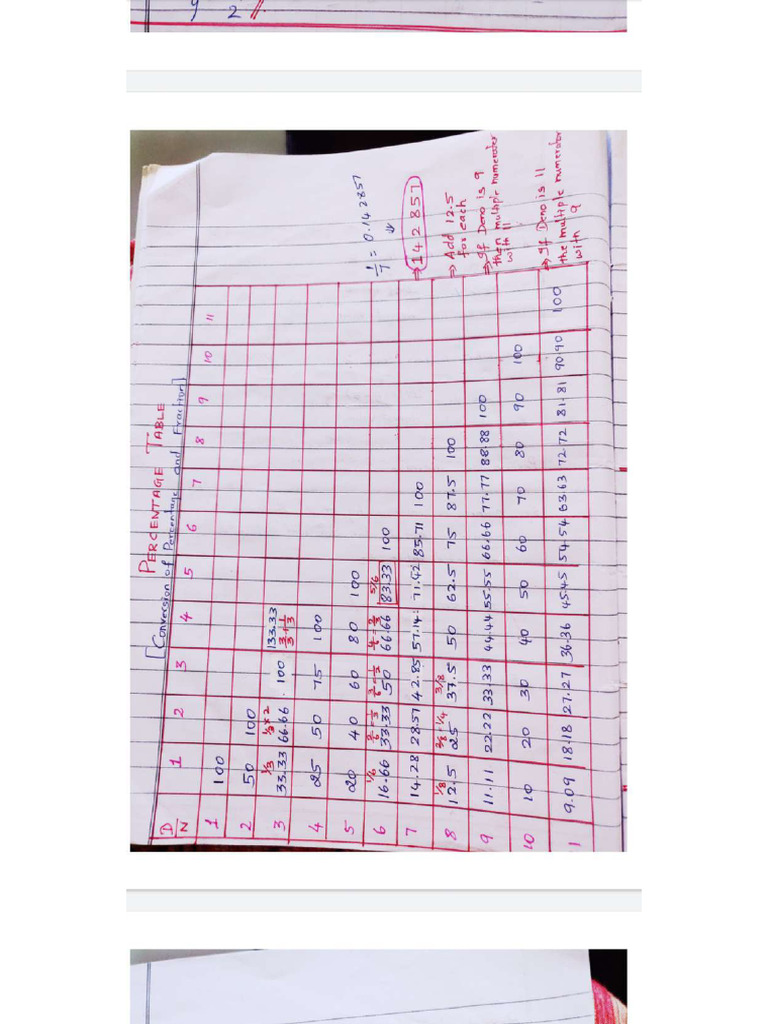 y 2 //
PERCENTAGE TABLE
[Conversion of Percentage and Fraction]
D/N 1 2 3 4 5 6 7 8 9 10 11
1 100
2 50 100
3 1/3 33.33 1/3 x 2 66.66 . 100 133.33 3/3 + 1/3
4 25 50 75 100
5 20 40 60 80 100
6 1/6 16.66 2/6 = 1/3 33.33 3/6 = 1/2 50 4/6 = 2/3 66.66 5/6 83.33 100
7 14.28 28.57 42.85 57.14 71.42 85.71 100
8 1/8 12.5 2/8 1/4 25 3/8 37.5 50 62.5 75 87.5 100
9 11.11 22.22 33.33 44.44 55.55 66.66 77.77 88.88 100
10 10 20 30 40 50 60 70 80 90 100
1 9.09 18.18 27.27 36.36 45.45 54.54 63.63 72.72 81.81 90.90 100
1/7 = 0.142857
⇒ 142857
⇒ Add 12.5
for each
⇒ If Deno is 9
then multiple numerater
with 11
⇒ If Deno is 11
the multiple numerator
with 9